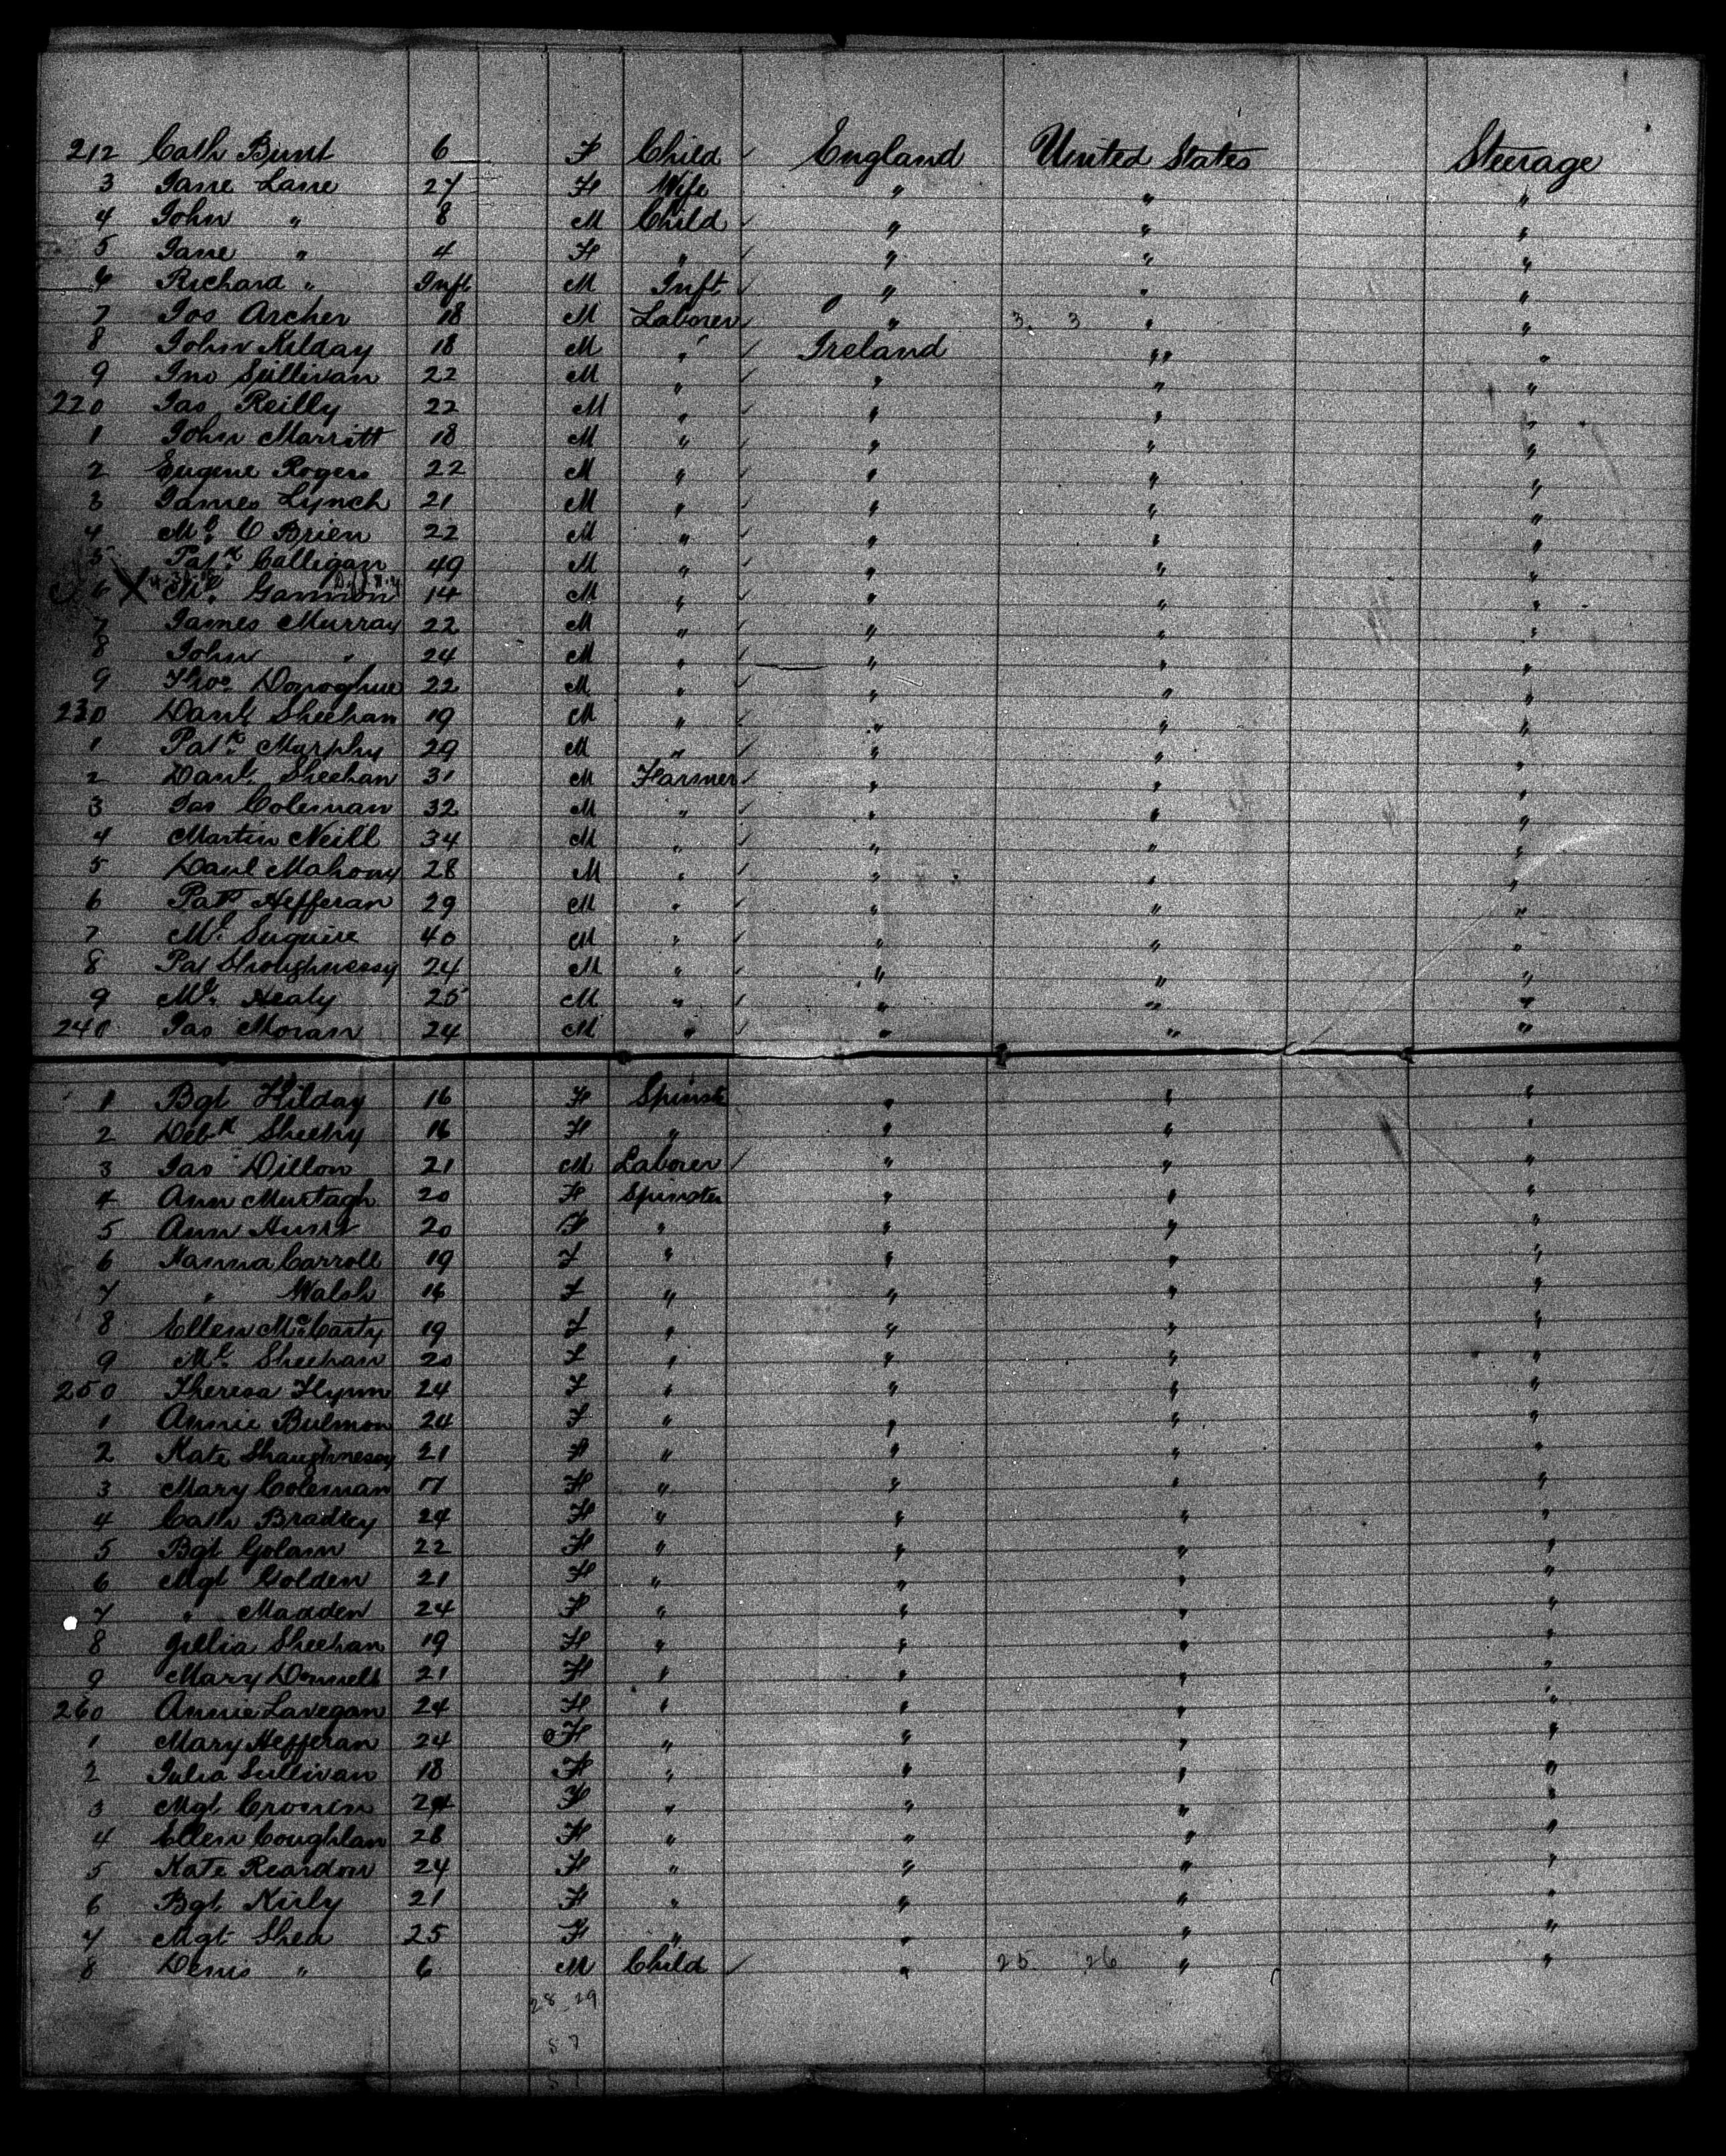 212 Cath Bunt 6 F Child ✓ England United States Steerage
3 Jane Lane 27 F Wife " " "
4 John " 8 M Child ✓ " " "
5 Jane " 4 F " ✓ " " "
6 Richard " Inft M Inft ✓ " " "
7 Jos Archer 18 M Laborer ✓ " 3 3 " "
8 John Kilday 18 M " ✓ Ireland " "
9 Jno Sullivan 22 M " ✓ " " "
220 Jas Reilly 22 M " ✓ " " "
1 John Marritt 18 M " ✓ " " "
2 Eugene Rogers 22 M " ✓ " " "
3 James Lynch 21 M " ✓ " " "
4 Ml. O Brien 22 M " ✓ " " "
5 Patk Calligan 49 M " ✓ " " "
6 X Ml. Gannon 14 M " ✓ " " "
7 James Murray 22 M " ✓ " " "
8 John " 24 M " ✓ " " "
9 Thos Donoghue 22 M " ✓ " " "
230 Danl Sheehan 19 M " ✓ " " "
1 Patk Murphy 29 M " ✓ " " "
2 Danl. Sheehan 31 M Farmer ✓ " " "
3 Jas Coleman 32 M " ✓ " " "
4 Martin Neill 34 M " ✓ " " "
5 Danl Mahony 28 M " ✓ " " "
6 Patk Hefferan 29 M " ✓ " " "
7 Ml. 40 M " ✓ " " "
8 Pat Shoughnessy 24 M " ✓ " " "
9 Ml. Healy 25 M " ✓ " " "
240 Jas Moran 24 M " ✓ " " "
1 Bgt Kilday 16 F Spinst " " "
2 Sheehy 16 F " " " "
3 Jas Dillon 21 M Laborer ✓ " " "
4 Ann Murtagh 20 F Spinster " " "
5 Ann Hunt 20 F " " " "
6 Hanna Carroll 19 F " " " "
7 " Walsh 16 F " " " "
8 Ellen McCarty 19 F " " " "
9 Ml. Sheehan 20 F " " " "
250 Theresa Flynn 24 F " " " "
1 Annie Bulmon 24 F " " " "
2 Kate Shaughnessy 21 F " " " "
3 Mary Coleman 17 F " " " "
4 Cath Bradley 24 F " " " "
5 Bgt 22 F " " " "
6 Mgt Golden 21 F " " " "
7 " Madden 24 F " " " "
8 Julia Sheehan 19 F " " " "
9 Mary Donnell 21 F " " " "
260 Annie Lavegan 24 F " " " "
1 Mary Hefferan 24 F " " " "
2 Julia Sullivan 18 F " " " "
3 Mgt Cronin 24 F " " " "
4 Ellen Coughlan 28 F " " " "
5 Kate Reardon 24 F " " " "
6 Bgt Kirly 21 F " " " "
7 Mgt Shea 25 F " " " "
8 Denis " 6 M Child ✓ " 25 26 " "
28 29
57